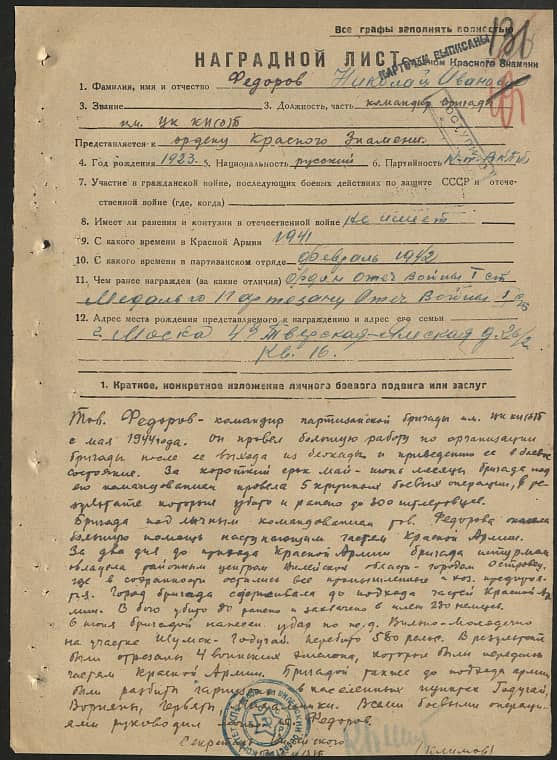 Все графы заполнять полностью
131
КАРТОЧКИ ВЫПИСАНЫ
НАГРАДНОЙ ЛИСТ
Красного Знамени
1. Фамилия, имя и отчество Федоров Николай Иванович
3. Звание 3. Должность, часть командир бригады
им. ЦК КП(б)Б
Представляется к ордену Красного Знамени.
4. Год рождения 1923 5. Национальность русский 6. Партийность к-т ВКПб
7. Участие в гражданской войне, последующих боевых действиях по защите СССР и отече-
ственной войне (где, когда)
8. Имеет ли ранения и контузии в отечественной войне не имеет
9. С какого времени в Красной Армии 1941
10. С какого времени в партизанском отряде февраль 1942
11. Чем ранее награжден (за какие отличия) Орден Отеч войны I ст
Медаль Партизану Отеч Войны I
12. Адрес места рождения представляемого к награждению и адрес его семьи
г. Москва 4я Тверская-Ямская д. 26/2
кв. 16.
1. Краткое, конкретное изложение личного боевого подвига или заслуг
Тов. Федоров - командир партизанской бригады им. ЦК КП(б)Б
с мая 1944 года. Он провел большую работу по организации
бригады после ее выхода из блокады и приведению ее в боевое
состояние. За короткий срок май-июнь месяцы бригада под
его командованием провела 5 крупных боевых операций, в ре-
зультате которых убито и ранено до 300 гитлеровцев.
Бригада под личным командованием тов. Федорова оказала
большую помощь наступающим частям Красной Армии.
За два дня до прихода Красной Армии бригада штурмом
овладела районным центром Вилейской области - городом Островец,
где в сохранности остались все промышленные и хоз. предприя-
тия. Город бригада удерживала до подхода частей Красной Ар-
мии. В бою убито до ранено и захвачено в плен 230 немцев.
бригадой нанесен удар по ж.д. Вильно-Молодечно
на участке Шумск-Годутай. Перебито 580 рельс. В результате
были отрезаны 4 воинских эшелона, которые были переданы
частям Красной Армии. Бригадой также до подхода армии
были разбиты гарнизоны в населенных пунктах Годутай,
Ворняны, Гервяты, Всеми боевыми операци-
ями руководил тов. Федоров.
Секретарь
(Климов)